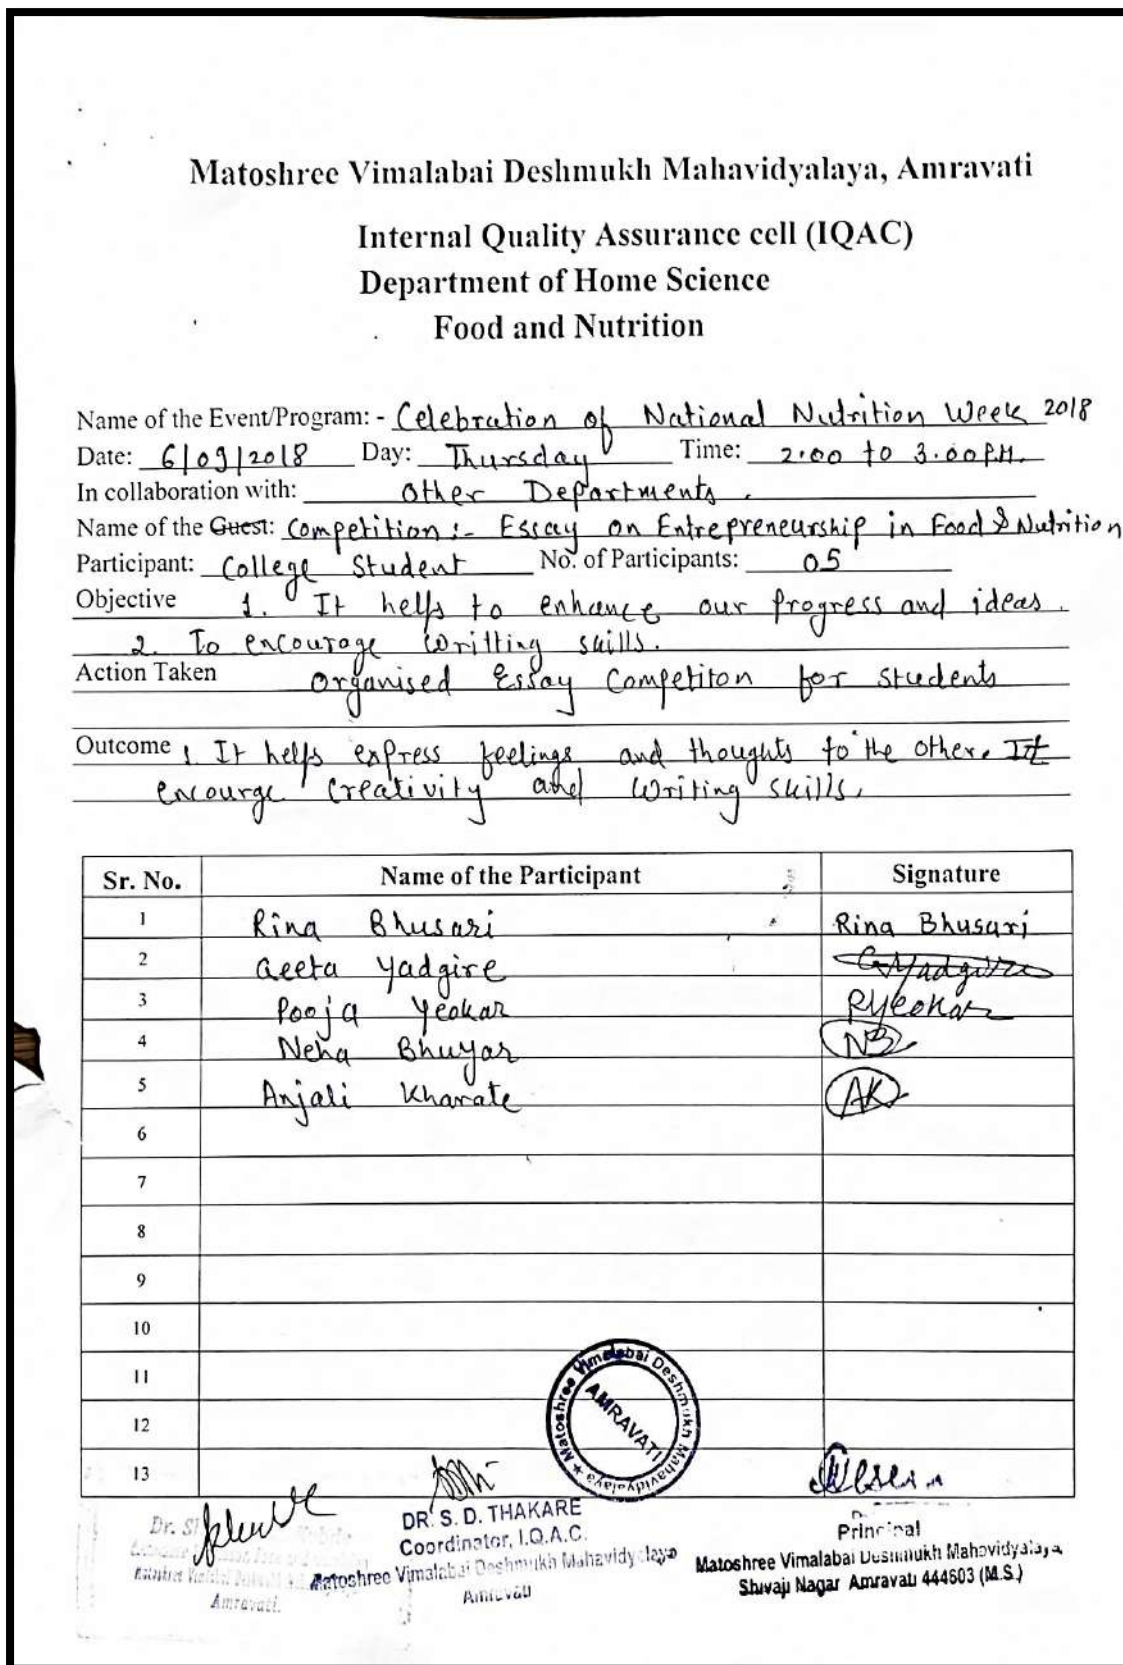 Matoshree Vimalabai Deshmukh Mahavidyalaya, Amravati
Internal Quality Assurance cell (IQAC)
Department of Home Science
Food and Nutrition
Name of the Event/Program: - Celebration of National Nutrition Week 2018
Date: 6/09/2018 Day: Thursday Time: 2.00 to 3.00 P.M.
In collaboration with: Other Departments.
Name of the Guest: Competition :- Essay on Entrepreneurship in Food & Nutrition
Participant: College Student No. of Participants: 05
Objective 1. It helps to enhance our progress and ideas.
2. To encourage writting skills.
Action Taken Organised Essay Competiton for students
Outcome 1. It helps express feelings and thoughts to the other. It
encourge creativity and writing skills.
Sr. No. Name of the Participant Signature
1 Rina Bhusari Rina Bhusari
2 Geeta Yadgire GYadgire
3 Pooja Yeokar PYeokar
4 Neha Bhuyar NB
5 Anjali Kharate AK
6
7
8
9
10
11
12
13
Matoshree Vimalabai Deshmukh Mahavidyalaya ★
AMRAVATI
Dr.
Amravati.
DR. S. D. THAKARE
Coordinator, I.Q.A.C.
Matoshree Vimalabai Deshmukh Mahavidyalaya
Amravati
Principal
Matoshree Vimalabai Deshmukh Mahavidyalaya,
Shivaji Nagar Amravati 444603 (M.S.)